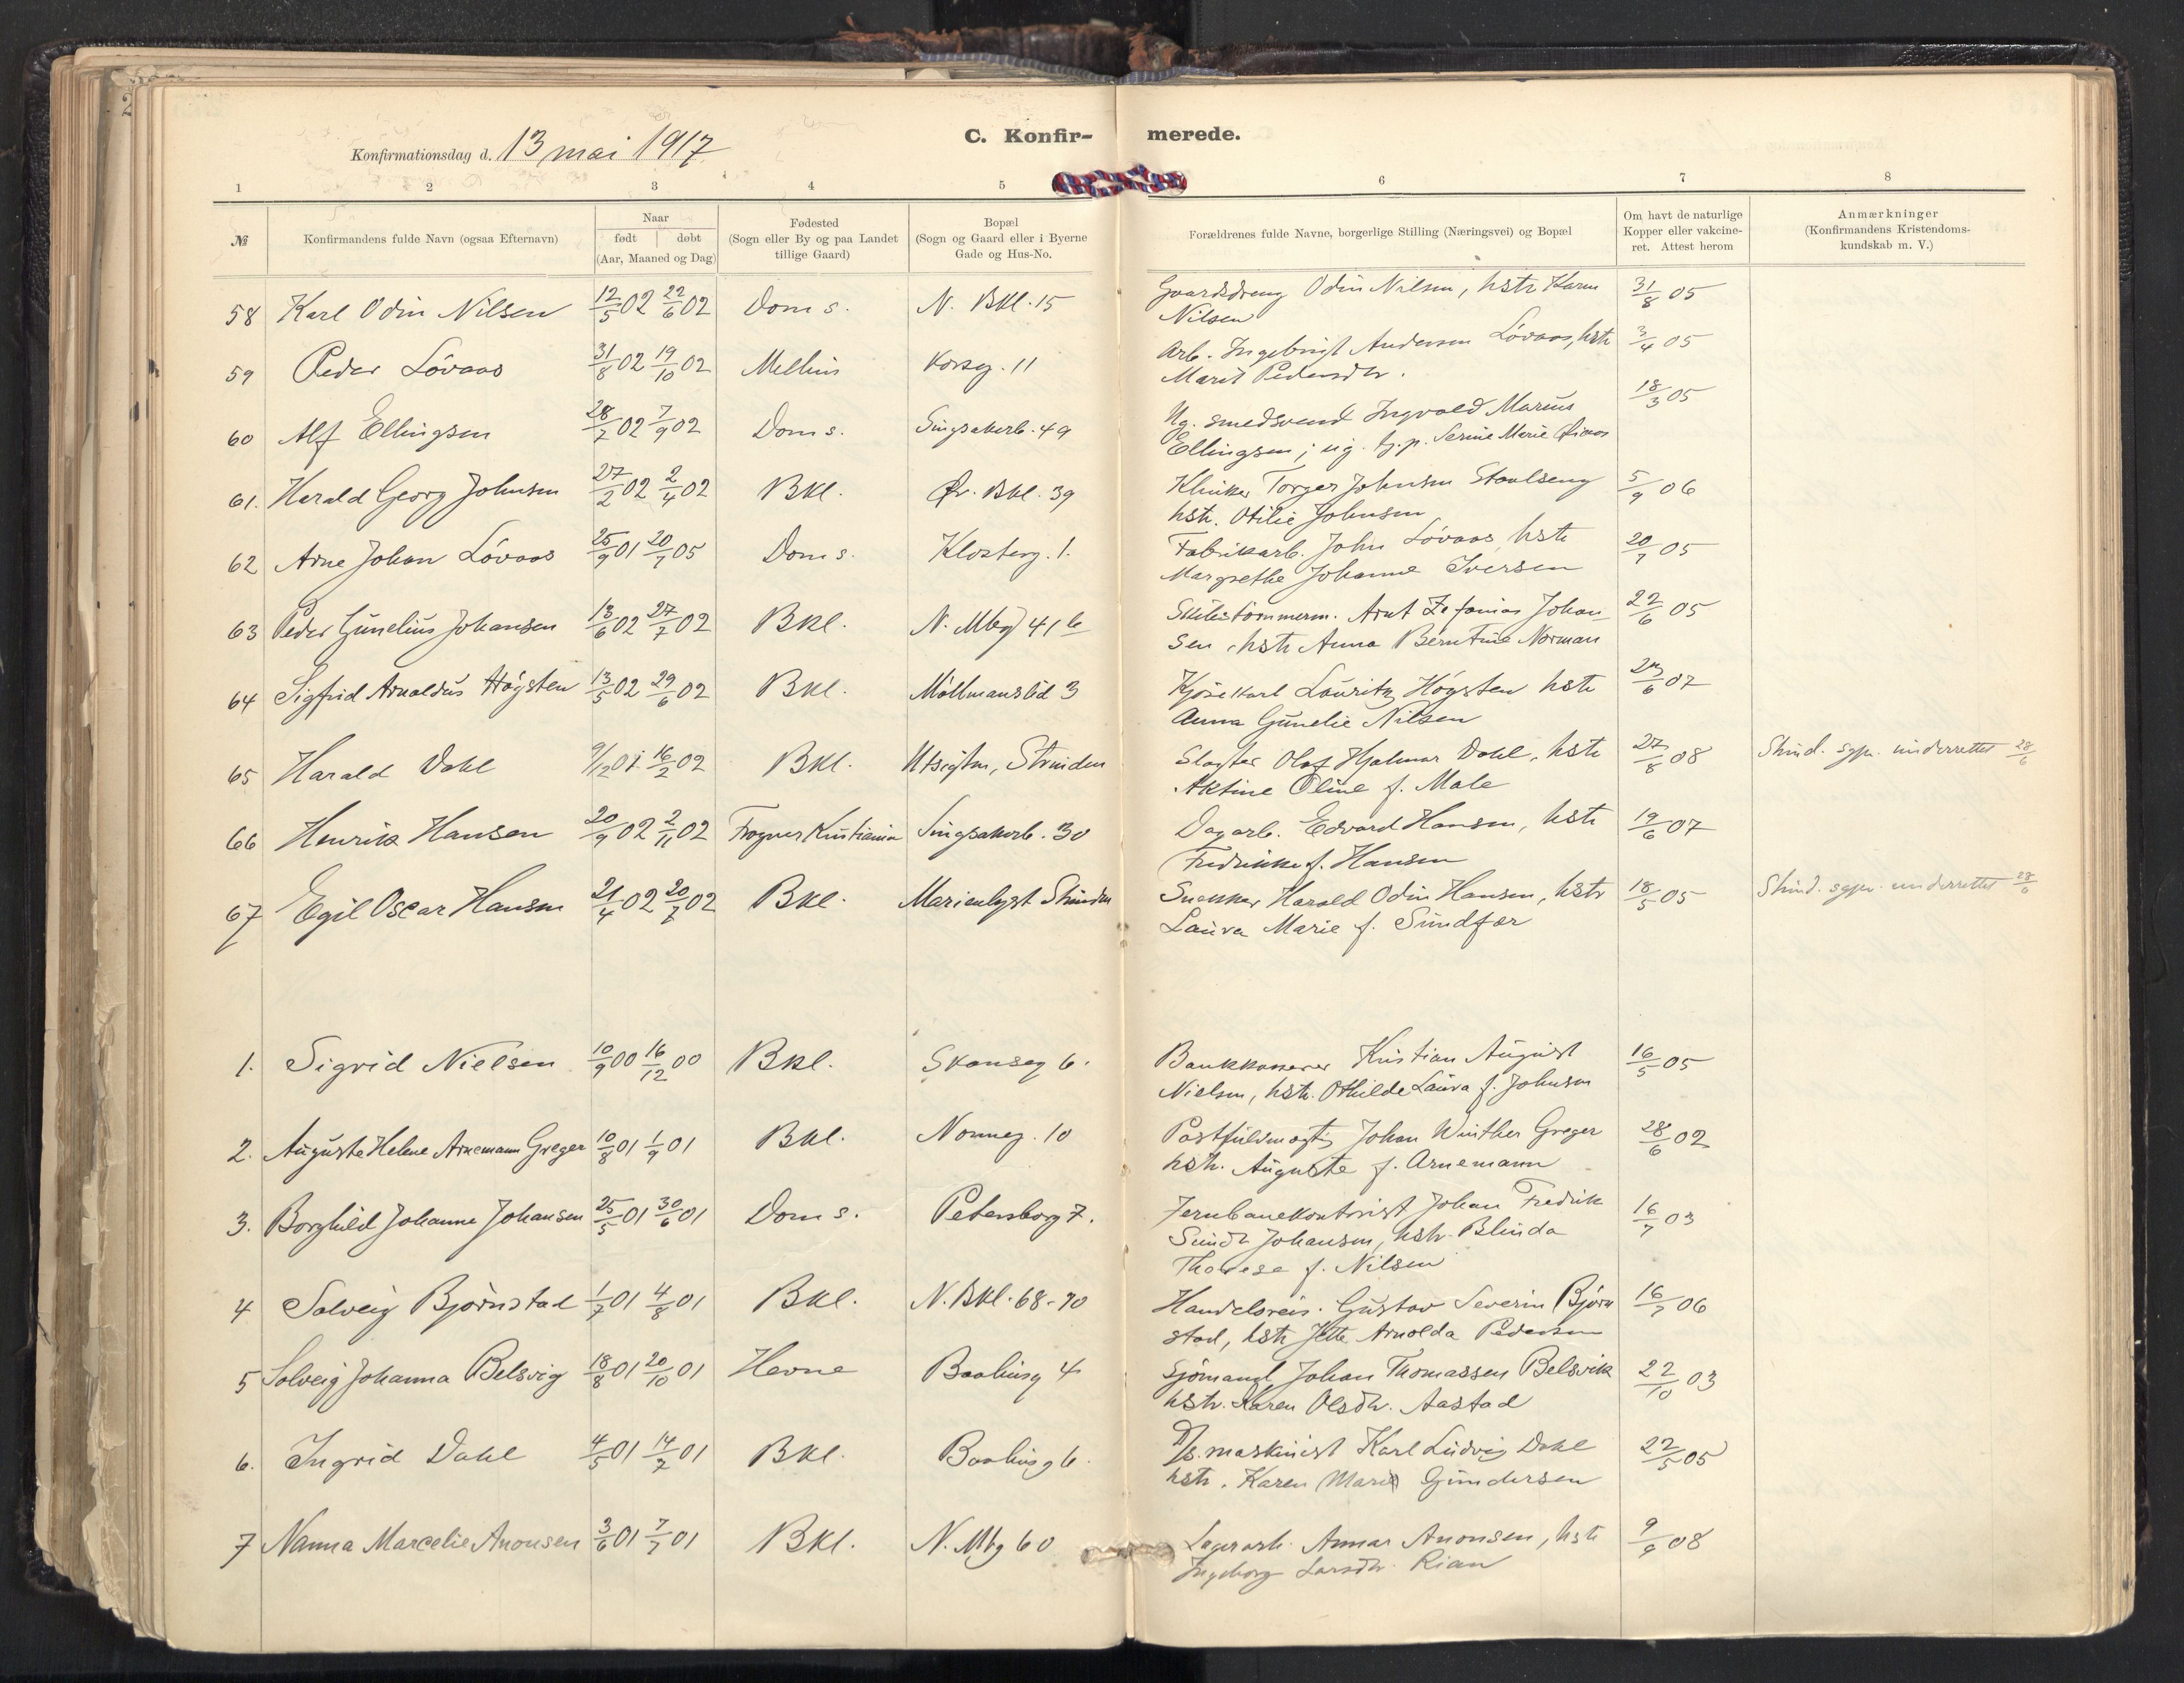 C. Konfir-
merede.
Konfirmationsdag d. 13 mai 1917
1 2 3 4 5 6 7 8
№ Konfirmandens fulde Navn (ogsaa Efternavn) Naar født døbt (Aar, Maaned og Dag) Fødested (Sogn eller By og paa Landet tillige Gaard) Bopæl (Sogn og Gaard eller i Byerne Gade og Hus-No. Forældrenes fulde Navne, borgerlige Stilling (Næringsvei) og Bopæl Om havt de naturlige Kopper eller vakcineret. Attest herom Anmærkninger (Konfirmandens Kristendoms-kundskab m. V.)
58 Karl Odin Nilsen 12/5 02 22/6 02 Doms. N. Bkl. 15 Gaardsdreng Odin Nilsen, hstr Karen 31/8 05
Nilsen
59 Peder Lövaas 31/8 02 19/10 02 Melhus Korsg. 11 Arb. Ingebrigt Andersen Lövaas, hstr 3/4 05
Marit Pedersdtr.
60 Alf Ellingsen 28/7 02 7/9 02 Doms. Singsakerb. 49 Ug. smedsvend Ingvald Marius 18/3 05
Ellingsen; ug. tj.p. Serine Marie
61. Harald Georg Johnsen 27/2 02 2/4 02 Bkl. Øv. Bkl. 39 Klinker Torger Johnsen Stavlseng 5/9 06
hstr. Otilie Johnsen
62 Arne Johan Lövaas 25/9 01 20/7 05 Doms. Klosterg. 1. Fabrikarb. John Lövaas, hstr 20/7 05
Margrethe Johanne Iversen
63 Peder Gunelius Johansen 13/6 02 27/7 02 Bkl. N. Mbg 41 b Skibstömmerm. Arnt Zefanias Johan- 22/6 05
sen, hstr Anna Berntine Norman
64 Sigfrid Arnoldus Högsten 13/5 02 29/6 02 Bkl. Möllmanslid 3 Kjörekarl Lauritz Högsten hstr 23/6 07
Anna Gunelie Nilsen
65 Harald Dahl 9/12 01 16/2 02 Bkl. Utsigten, Strinden Slagter Olaf Hjalmar Dahl, hstr 27/8 08 Strind. sgpr. underrettet 28/6
Aktine Oline f. Male
66 Henrik Hansen 20/9 02 2/11 02 Frogner Kristiania Singsakerb. 30 Dagarb. Edvard Hansen, hstr 19/6 07
Fredrikke f. Hansen
67 Egil Oscar Hansen 21/4 02 20/7 02 Bkl. Marienlyst Strinden Snekker Harald Odin Hansen, hstr 18/5 05 Strind. sgpr. underrettet 28/6
Laura Marie f. Sundfær
1. Sigrid Nielsen 10/9 00 16/12 00 Bkl. Skanseg 6. Bankkasserer Kristian August 16/5 05
Nielsen, hstr. Othilde Laura f. Johnsen
2. Auguste Helene Arnemann Greger 10/8 01 1/9 01 Bkl. Nonneg. 10 Postfuldmægtig Johan Winther Greger 28/6 02
hstr. Auguste f. Arnemann
3. Borghild Johanne Johansen 25/5 01 30/6 01 Doms. Petersborg 7. Jernbanekontorist Johan Fredrik 16/7 03
Sundt Johansen, hstr. Blinda
Therese f. Nilsen
4 Solveig Björnstad 1/7 01 4/8 01 Bkl. N. Bkl. 68-70 Handelsreis. Gustav Severin Björn 16/7 06
stad, hstr Jette Arnolda Pedersen
5 Solveig Johanna Belsvig 18/8 01 20/10 01 Hevne Baahusg 4 Sjömand Johan Thomassen Belsvik 22/10 03
hstr. Karen Olsdtr. Aastad
6. Ingrid Dahl 4/5 01 14/7 01 Bkl. Baahusg 6. D/s. maskinist Karl Ludvig Dahl 22/5 05
hstr. Karen Marie Gundersen
7 Nanna Marcelie Anonsen 3/6 01 7/7 01 Bkl. N. Mbg 60 Lagerarb. Annar Anonsen, hstr 9/9 08
Ingeborg Larsdtr. Rian